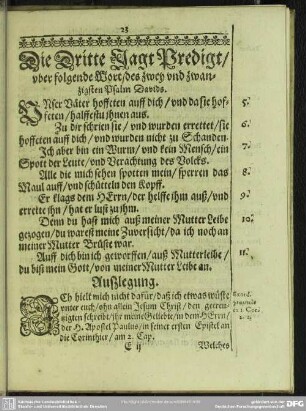 23
Die Dritte Jagt Predigt/
vber folgende Wort/ des zwey vnd zwan-
zigsten Psalm Davids.
VNser Väter hoffeten auff dich/ vnd da sie hof- 5.
feten/ halffestu jhnen aus.
Zu dir schrien sie/ vnd wurden errettet/ sie 6.
hoffeten auff dich/ vnd wurden nicht zu Schanden.
Ich aber bin ein Wurm/ vnd kein Mensch/ ein 7.
Spott der Leute/ vnd Verachtung des Volcks.
Alle die mich sehen spotten mein/ sperren das 8.
Maul auff/ vnd schütteln den Kopff.
Er klags dem HErrn/ der helffe jhm auß/ vnd 9.
errette jhn/ hat er lust zu jhm.
Denn du hast mich auß meiner Mutter Leibe 10.
gezogen/ du warest meine Zuversicht/ da ich noch an
meiner Mutter Brüste war.
Auff dich bin ich geworffen/ auß Mutterleibe/ 11.
du bist mein Gott/ von meiner Mutter Leibe an.
Außlegung.
ICh hielt mich nicht dafür/ daß ich etwas wüste
unter euch/ ohn allein Jesum Christ/ den gecreu-
tzigten schreibt/ jhr meine Geliebte/ in dem HErrn/
der H. Apostel Paulus/ in seiner ersten Epistel an
die Corinthier/ am 2. Cap.
E ij Welches